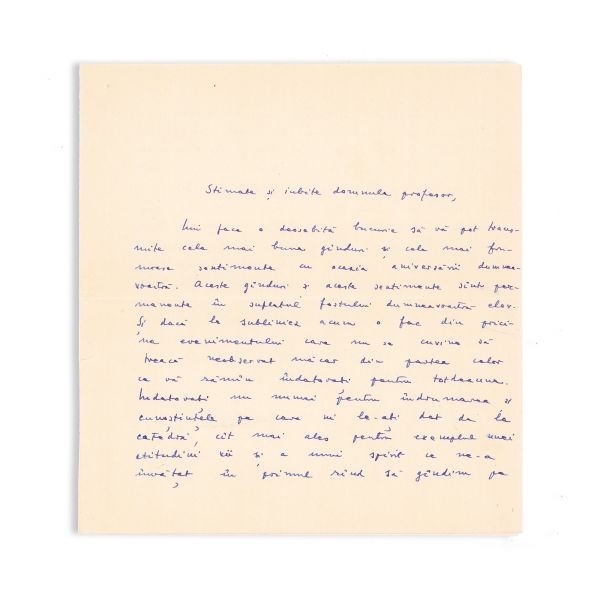 Stimate și iubite domnule profesor,
Îmi face o deosebită bucurie să vă pot trans-
mite cele mai bune gînduri și cele mai fru-
moase sentimente cu ocazia aniversării dumnea-
voastră. Aceste gînduri și aceste sentimente sînt per-
manente în sufletul fostului dumneavoastră elev.
Și dacă le subliniez acum o fac din prici-
na evenimentului care nu se cuvine să
treacă neobservat măcar din partea celor
ce vă rămîn îndatorați pentru totdeauna.
Îndatorați nu numai pentru îndrumarea și
cunoștințele pe care ni le-ați dat de la
catedră, cît mai ales pentru exemplul unei
atitudini vii și a unui spirit ce ne-a
învățat în primul rînd să gîndim pe